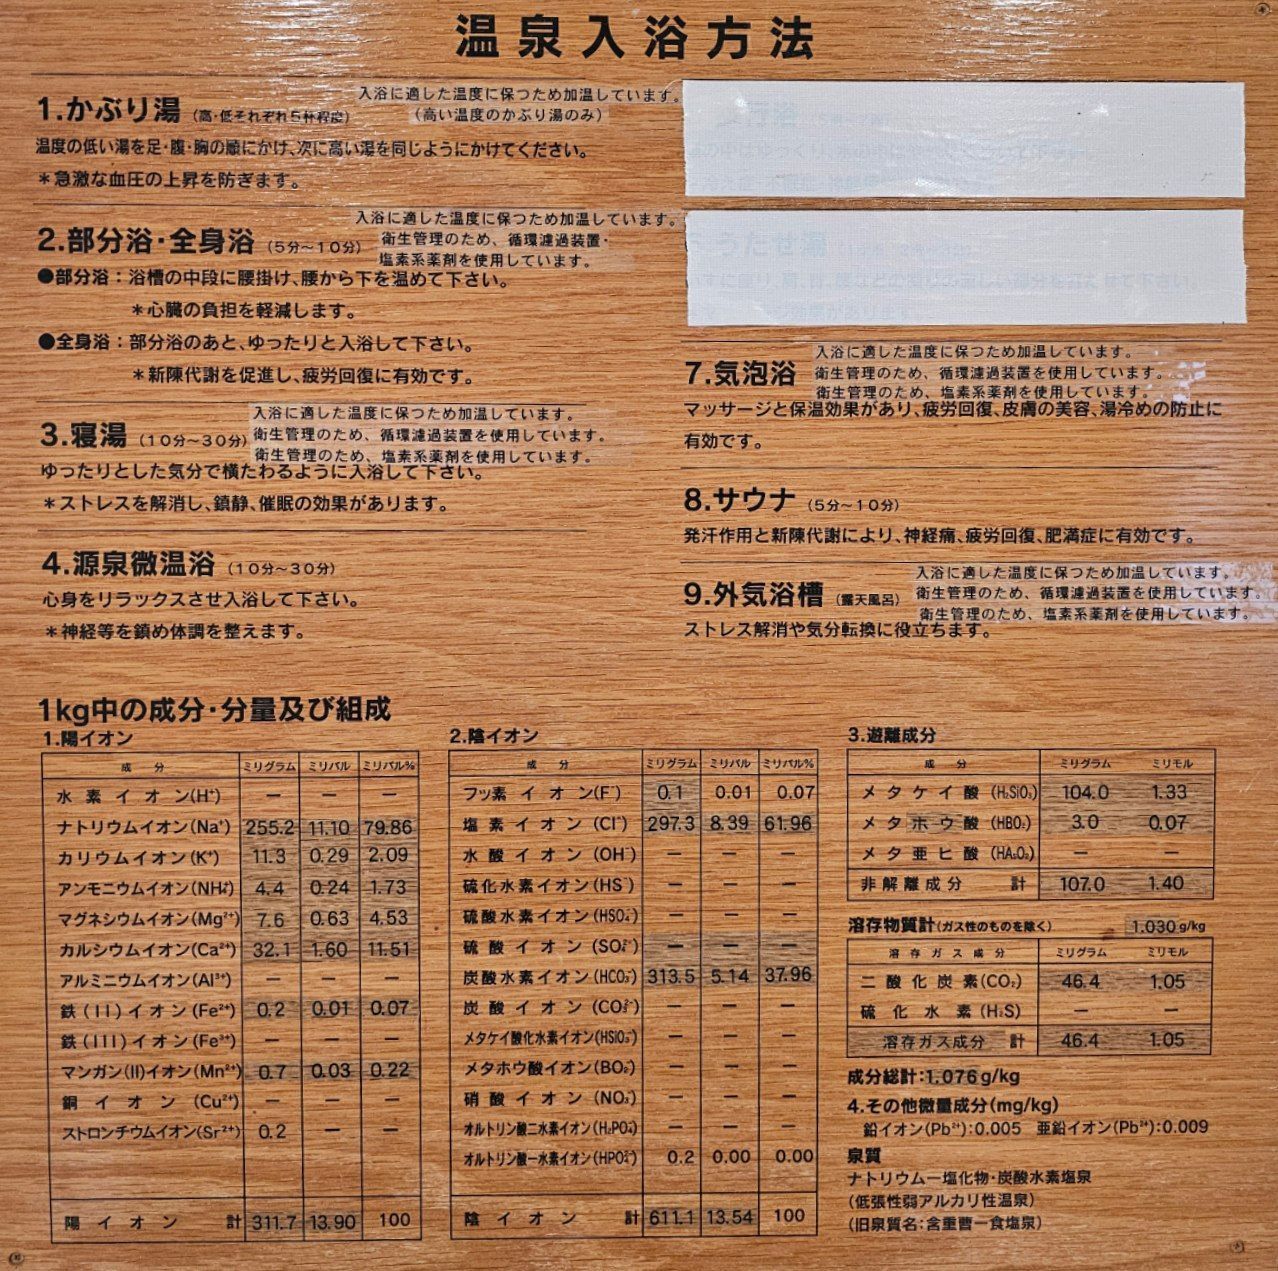 温泉入浴方法
1.かぶり湯（高・低それぞれ5杯程度）
入浴に適した温度に保つため加温しています。
（高い温度のかぶり湯のみ）
温度の低い湯を足・腹・胸の順にかけ、次に高い湯を同じようにかけてください。
＊急激な血圧の上昇を防ぎます。
2.部分浴・全身浴（5分～10分）
入浴に適した温度に保つため加温しています。
衛生管理のため、循環濾過装置・
塩素系薬剤を使用しています。
●部分浴：浴槽の中段に腰掛け、腰から下を温めて下さい。
＊心臓の負担を軽減します。
●全身浴：部分浴のあと、ゆったりと入浴して下さい。
＊新陳代謝を促進し、疲労回復に有効です。
3.寝湯（10分～30分）
入浴に適した温度に保つため加温しています。
衛生管理のため、循環濾過装置を使用しています。
衛生管理のため、塩素系薬剤を使用しています。
ゆったりとした気分で横たわるように入浴して下さい。
＊ストレスを解消し、鎮静、催眠の効果があります。
4.源泉微温浴（10分～30分）
心身をリラックスさせ入浴して下さい。
＊神経等を鎮め体調を整えます。
うたせ湯
7.気泡浴
入浴に適した温度に保つため加温しています。
衛生管理のため、循環濾過装置を使用しています。
衛生管理のため、塩素系薬剤を使用しています。
マッサージと保温効果があり、疲労回復、皮膚の美容、湯冷めの防止に
有効です。
8.サウナ（5分～10分）
発汗作用と新陳代謝により、神経痛、疲労回復、肥満症に有効です。
9.外気浴槽（露天風呂）
入浴に適した温度に保つため加温しています。
衛生管理のため、循環濾過装置を使用しています。
衛生管理のため、塩素系薬剤を使用しています。
ストレス解消や気分転換に役立ちます。
1kg中の成分・分量及び組成
1.陽イオン
成分 ミリグラム ミリバル ミリバル%
水素イオン(H⁺) － － －
ナトリウムイオン(Na⁺) 255.2 11.10 79.86
カリウムイオン(K⁺) 11.3 0.29 2.09
アンモニウムイオン(NH₄⁺) 4.4 0.24 1.73
マグネシウムイオン(Mg²⁺) 7.6 0.63 4.53
カルシウムイオン(Ca²⁺) 32.1 1.60 11.51
アルミニウムイオン(Al³⁺) － － －
鉄(II)イオン(Fe²⁺) 0.2 0.01 0.07
鉄(III)イオン(Fe³⁺) － － －
マンガン(II)イオン(Mn²⁺) 0.7 0.03 0.22
銅イオン(Cu²⁺) － － －
ストロンチウムイオン(Sr²⁺) 0.2 － －
陽イオン計 311.7 13.90 100
2.陰イオン
成分 ミリグラム ミリバル ミリバル%
フッ素イオン(F⁻) 0.1 0.01 0.07
塩素イオン(Cl⁻) 297.3 8.39 61.96
水酸イオン(OH⁻) － － －
硫化水素イオン(HS⁻) － － －
硫酸水素イオン(HSO₄⁻) － － －
硫酸イオン(SO₄²⁻) － － －
炭酸水素イオン(HCO₃⁻) 313.5 5.14 37.96
炭酸イオン(CO₃²⁻) － － －
メタケイ酸化水素イオン(HSiO₃⁻) － － －
メタホウ酸イオン(BO₂⁻) － － －
硝酸イオン(NO₃⁻) － － －
オルトリン酸二水素イオン(H₂PO₄⁻) － － －
オルトリン酸一水素イオン(HPO₄²⁻) 0.2 0.00 0.00
陰イオン計 611.1 13.54 100
3.遊離成分
成分 ミリグラム ミリモル
メタケイ酸(H₂SiO₃) 104.0 1.33
メタホウ酸(HBO₂) 3.0 0.07
メタ亜ヒ酸(HAsO₂) － －
非解離成分計 107.0 1.40
溶存物質計(ガス性のものを除く) 1.030g/kg
溶存ガス成分 ミリグラム ミリモル
二酸化炭素(CO₂) 46.4 1.05
硫化水素(H₂S) － －
溶存ガス成分計 46.4 1.05
成分総計：1.076g/kg
4.その他微量成分(mg/kg)
鉛イオン(Pb²⁺)：0.005 亜鉛イオン(Pb²⁺)：0.009
泉質
ナトリウム－塩化物・炭酸水素塩泉
(低張性弱アルカリ性温泉)
(旧泉質名：含重曹－食塩泉)